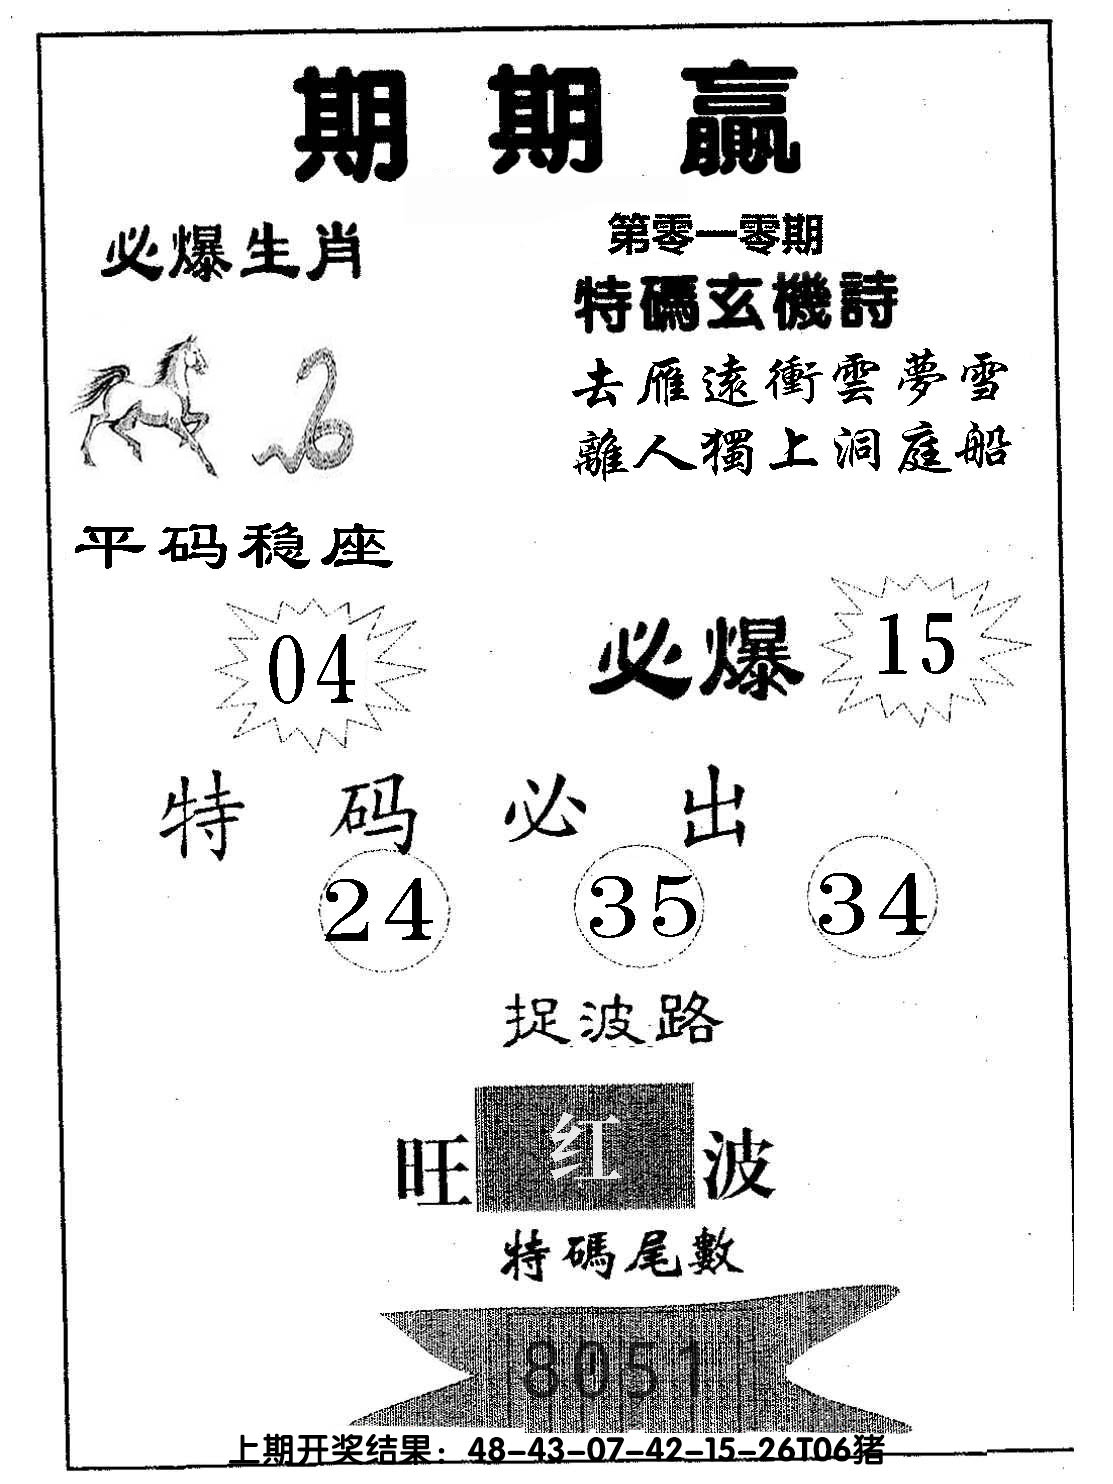 期期赢
必爆生肖
第零一零期
特碼玄機詩
去雁遠衝雲夢雪
離人獨上洞庭船
平码稳座
04
必爆
15
特码必出
24 35 34
捉波路
旺红波
特碼尾數
8051
上期开奖结果：48-43-07-42-15-26T06猪